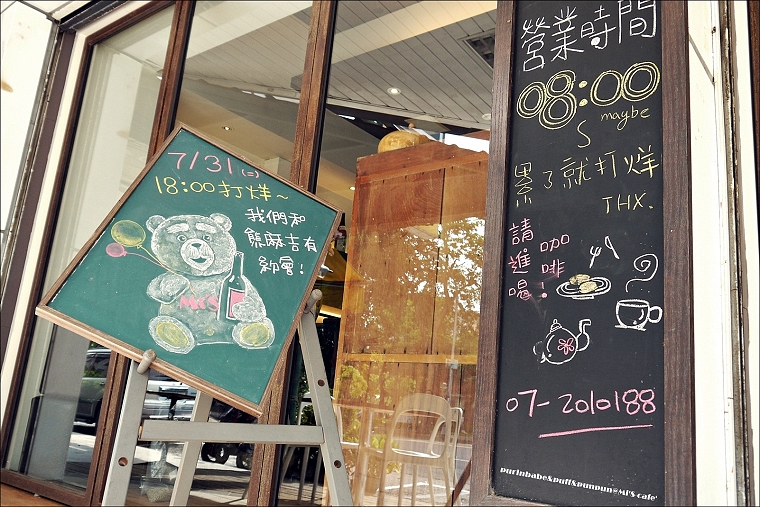 7/31(二)
18:00打烊~
我們和
熊麻吉有
約會!
MI'S
營業時間
08:00
maybe
S
累了就打烊
THX.
請進喝
咖啡!
07-2010188
purinbabe&puff&punpun@MI'S cafe'